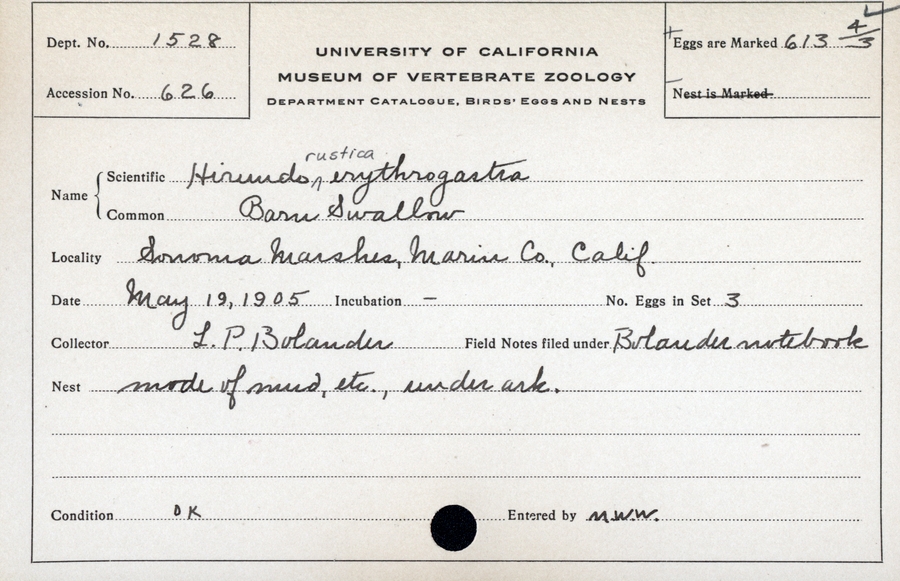 Dept. No. 1528
UNIVERSITY OF CALIFORNIA
MUSEUM OF VERTEBRATE ZOOLOGY
DEPARTMENT CATALOGUE, BIRDS' EGGS AND NESTS
+ Eggs are Marked 613 4/3 ✓
Accession No. 626
– Nest is Marked
rustica
Name { Scientific Hirundo ^ erythrogastra
Common Barn Swallow
Locality Sonoma Marshes, Marin Co., Calif.
Date May 19, 1905 Incubation – No. Eggs in Set 3
Collector L. P. Bolander Field Notes filed under Bolander notebook
Nest mode of mud, etc., under ark.
Condition OK Entered by M.W.W.